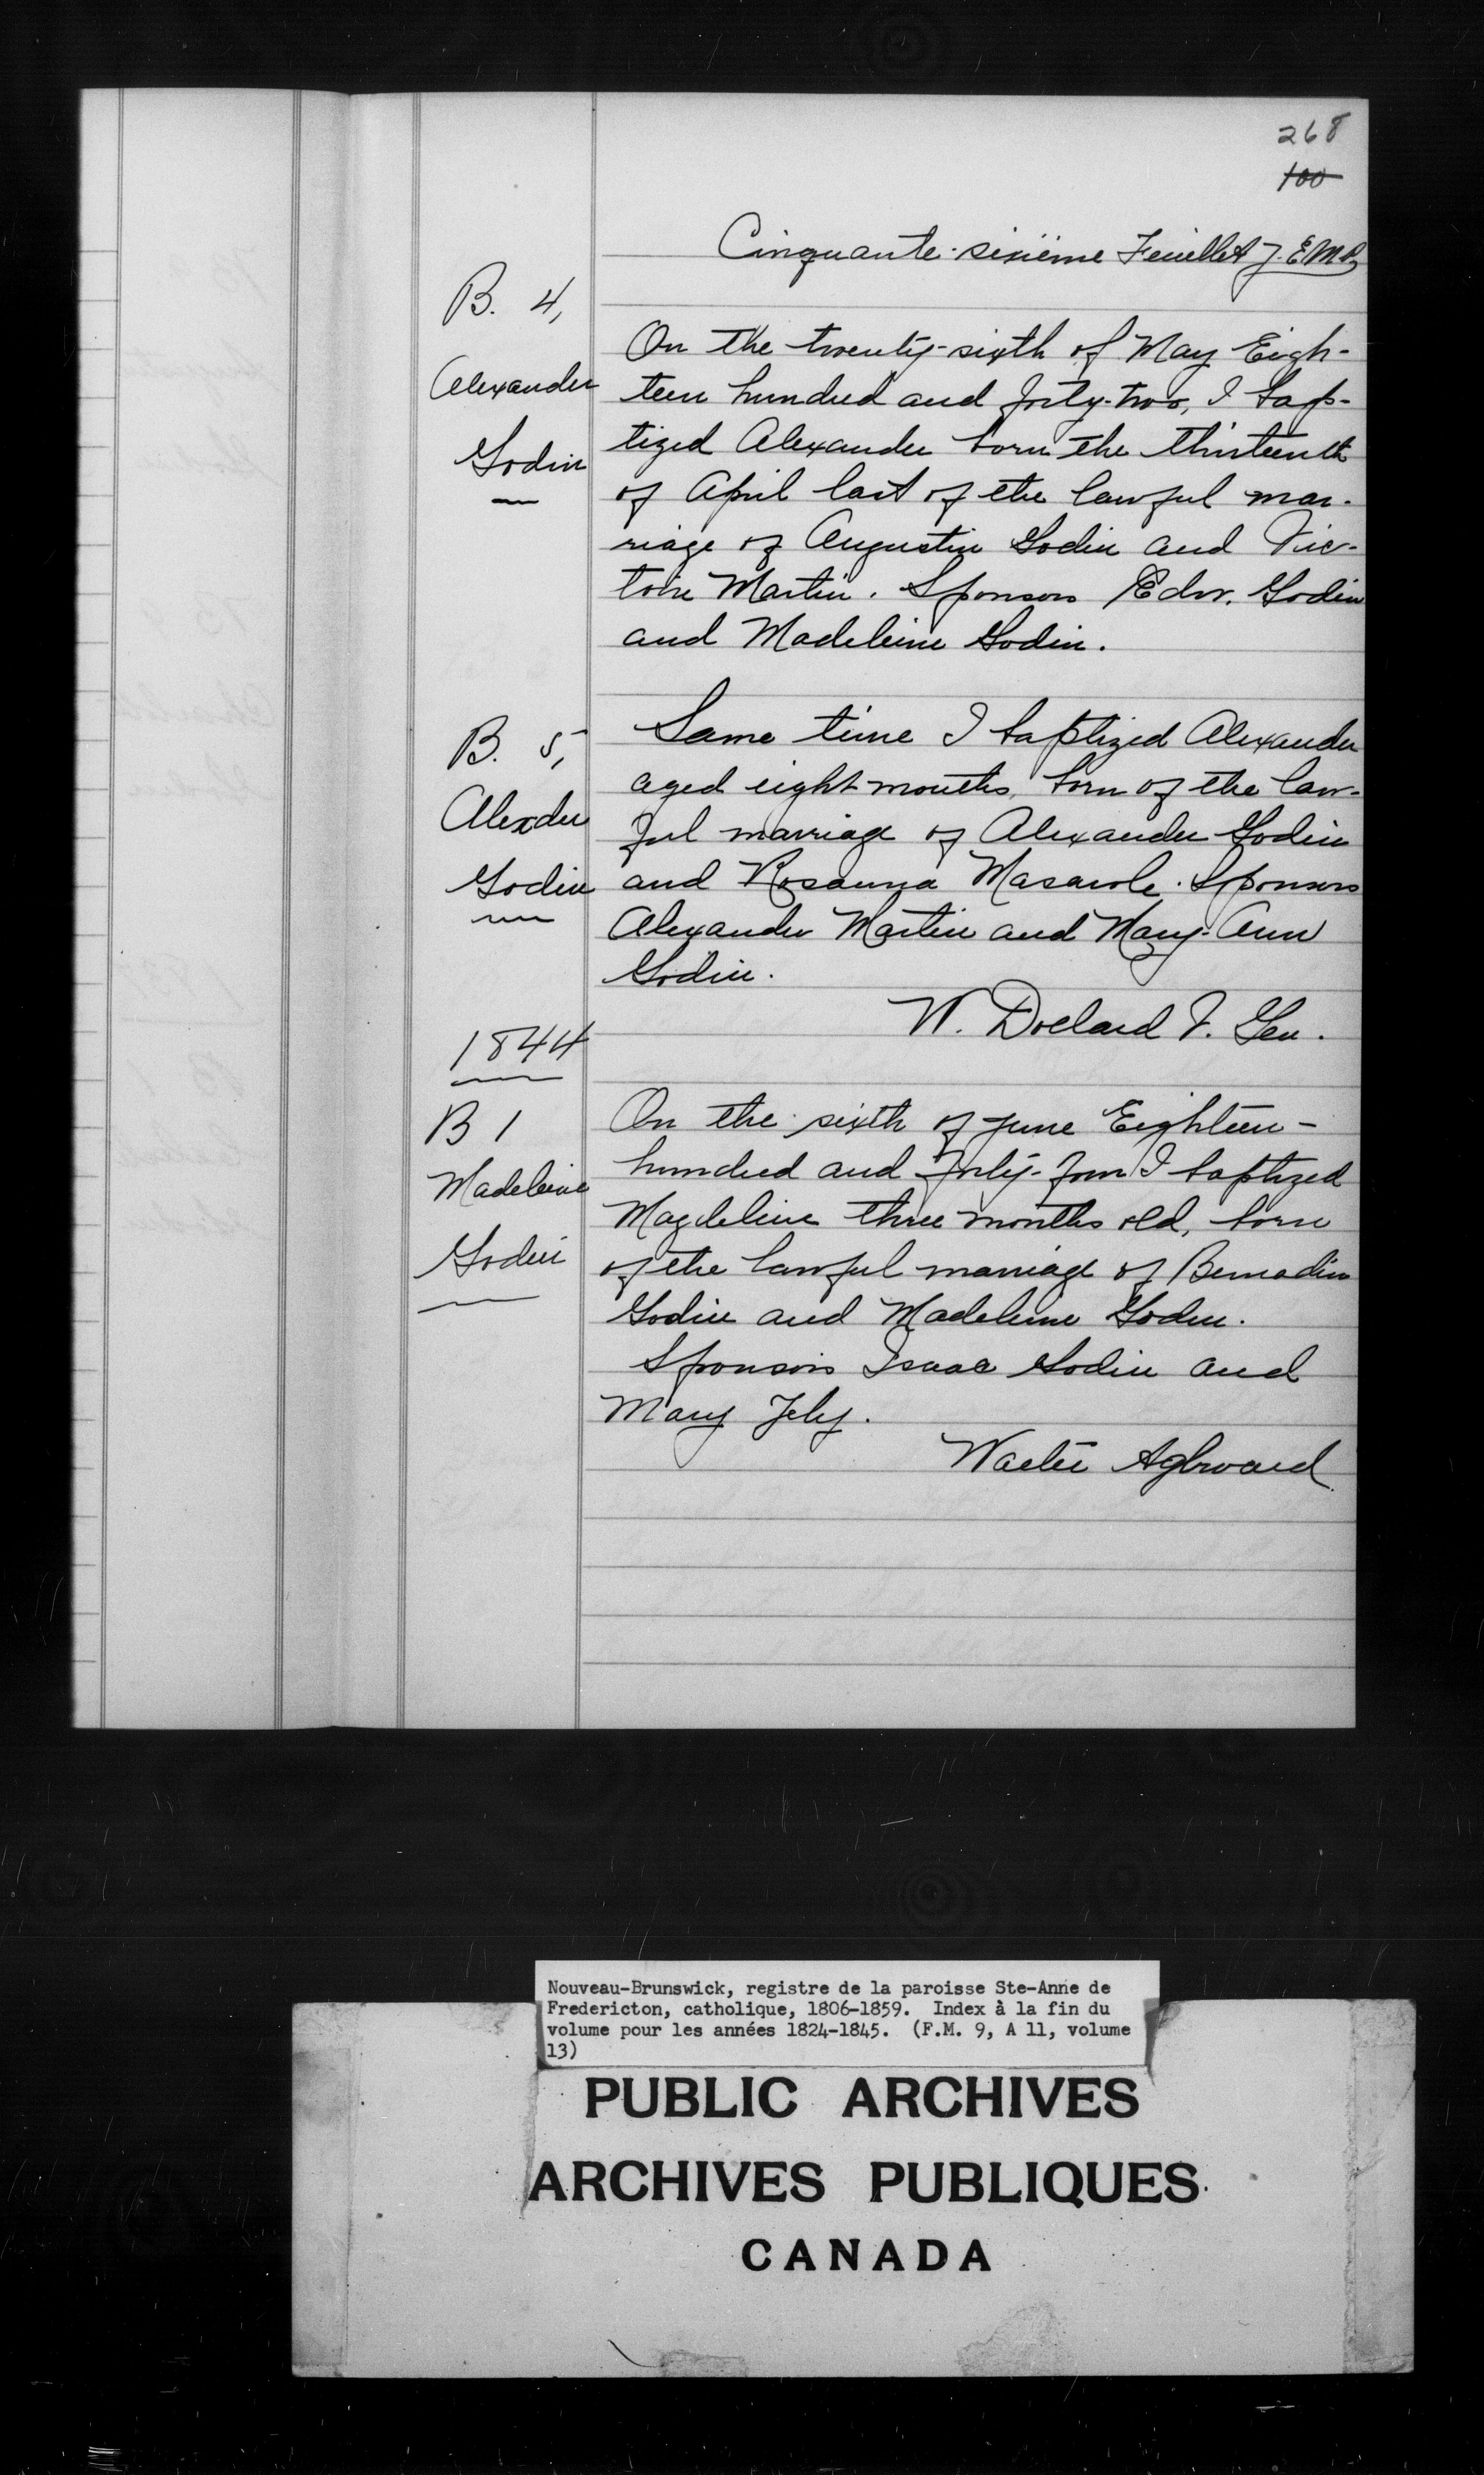 268
100
Cinquante-sixième Feuillet J. E. M. P.
B. 4,
Alexander
Godin
On the twenty-sixth of May Eigh-
teen hundred and forty-two, I bap-
tized Alexander born the thirteenth
of April last of the lawful mar-
riage of Augustin Godin and Vic-
toire Martin. Sponsors Edw. Godin
and Madeleine Godin.
B. 5,
Alexder
Godin
Same time I baptized Alexander
aged eight months, born of the law-
ful marriage of Alexander Godin
and Rosanna Masarole. Sponsors
Alexander Martin and Mary-Ann
Godin.
W. Dollard V. Gen.
1844
B 1
Madeleine
Godin
On the sixth of June Eighteen-
hundred and forty-four I baptized
Magdeline three months old, born
of the lawful marriage of Bernadin
Godin and Madeleine Godin.
Sponsors Isaac Godin and
Mary
Walter Aylward
Nouveau-Brunswick, registre de la paroisse Ste-Anne de
Fredericton, catholique, 1806-1859. Index à la fin du
volume pour les années 1824-1845. (F.M. 9, A 11, volume
13)
PUBLIC ARCHIVES
ARCHIVES PUBLIQUES
CANADA